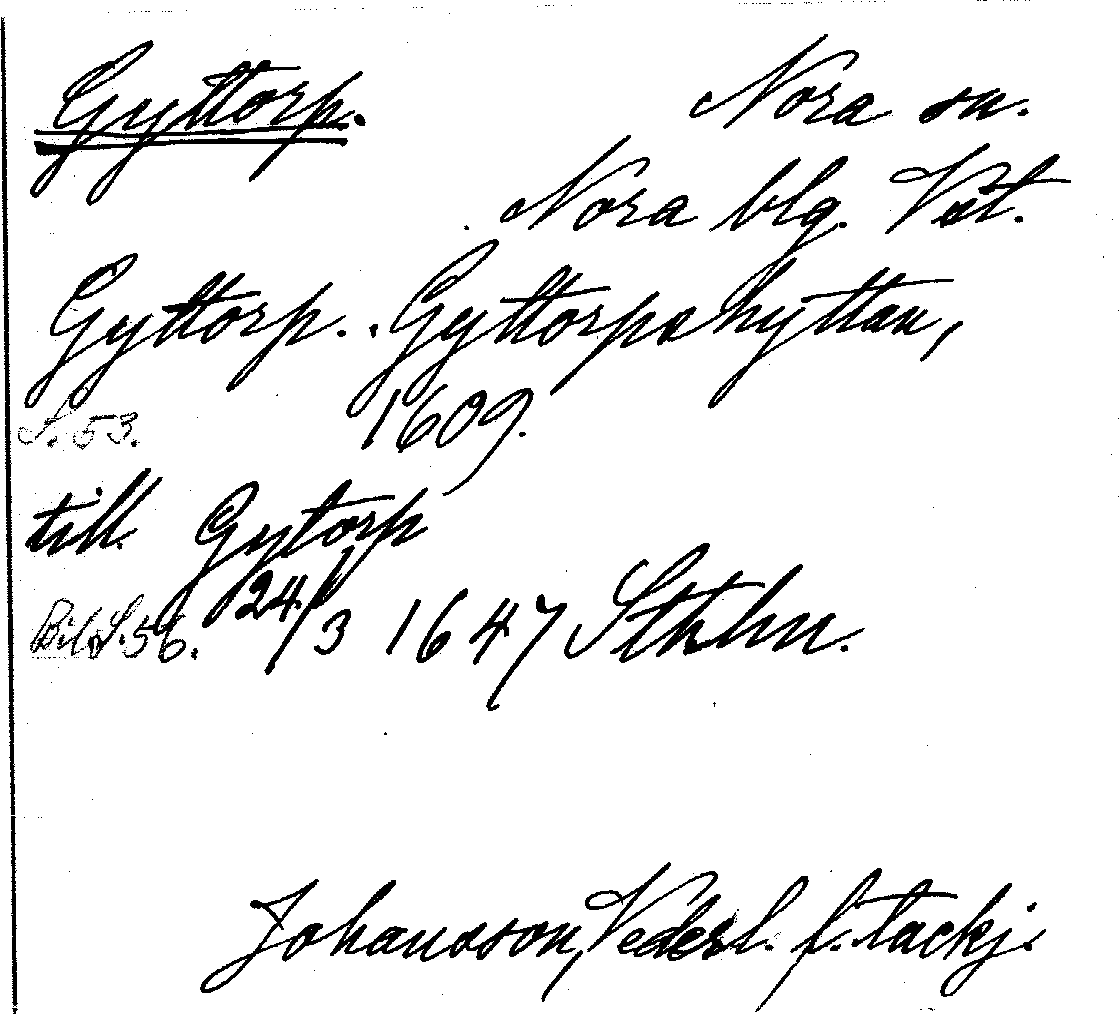 Gyttorp. Nora sn.
Nora blg. Vstl.
Gyttorp. Gyttorpshyttan,
S. 53. 1609.
till Gytorp
Bil. S. 56. 24/3 1647 Sthlm.
Johansson, Vederl. f. tackj.